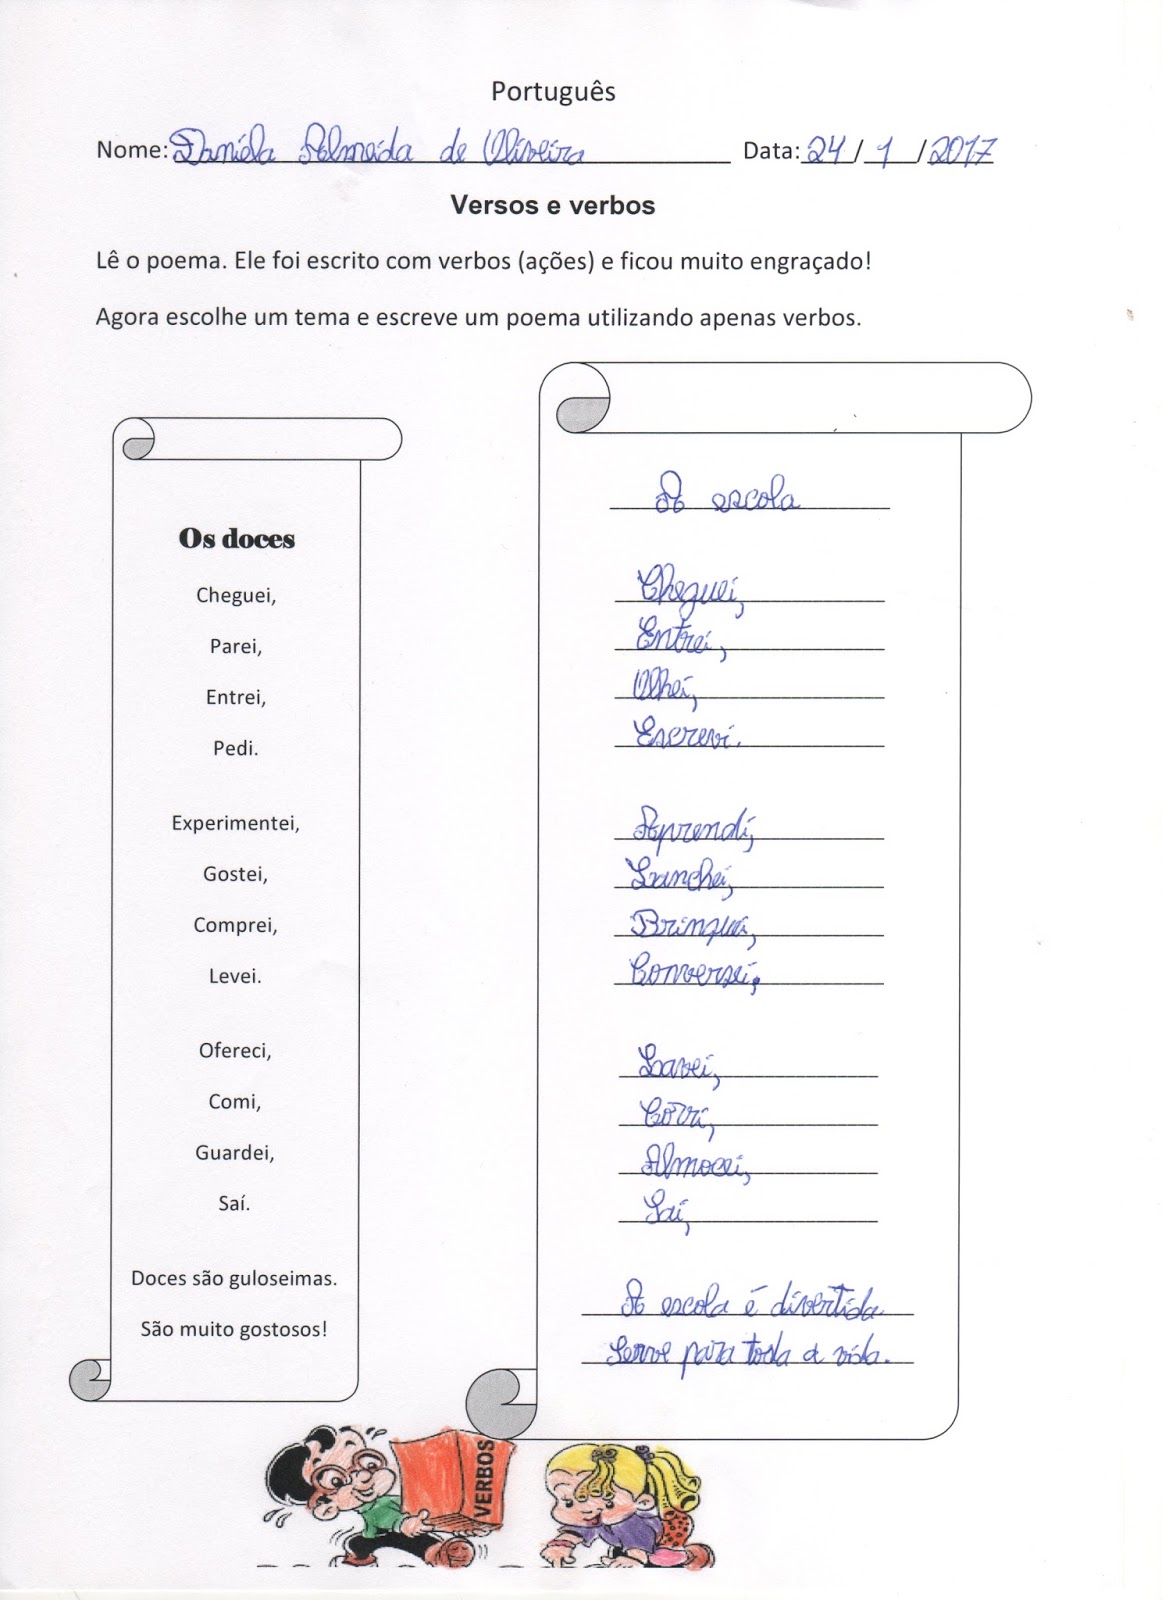 Português
Nome: Daniela Almeida de Oliveira Data: 24/1/2017
Versos e verbos
Lê o poema. Ele foi escrito com verbos (ações) e ficou muito engraçado!
Agora escolhe um tema e escreve um poema utilizando apenas verbos.
Os doces
Cheguei,
Parei,
Entrei,
Pedi.
Experimentei,
Gostei,
Comprei,
Levei.
Ofereci,
Comi,
Guardei,
Saí.
Doces são guloseimas.
São muito gostosos!
A escola
Cheguei,
Entrei,
Olhei,
Escrevi.
Aprendi,
Lanchei,
Brinquei,
Conversei,
Lavei,
Corri,
Almocei,
Saí,
A escola é divertida
Serve para toda a vida.
VERBOS